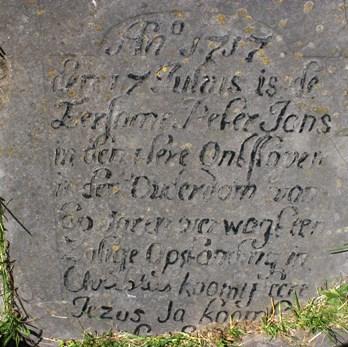 An° 1717
den 17 Julius is de
Eersame Peter Jans
in den Here Ontslapen
in den Ouderdom van
60 Jaren verwagt een
Salige Opstanding in
Christus koomt Here
Jezus Ja koomt